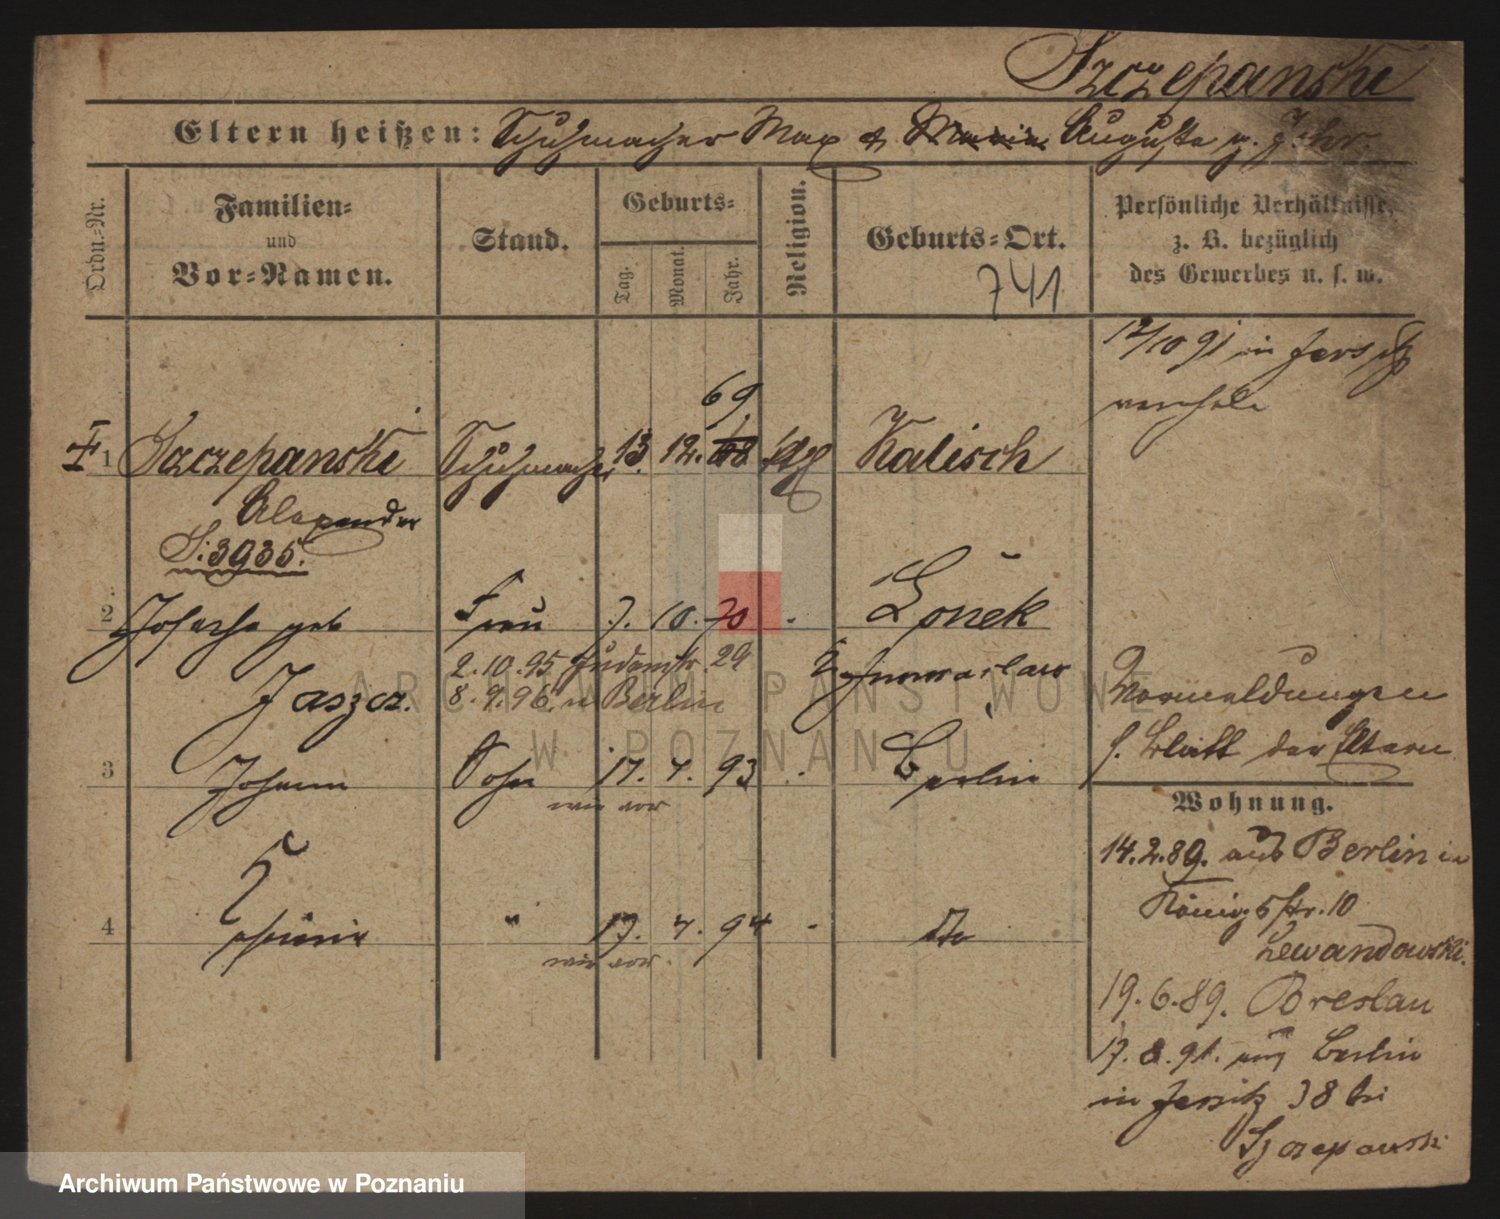 Szczepanski
Eltern heißen: Schuhmacher Max & Marie Auguste g.
Ordn.-Nr.
Familien-
und
Vor-Namen.
Stand.
Geburts-
Tag.
Monat.
Jahr.
Religion.
Geburts-Ort.
741
Persönliche Verhältnisse,
z. B. bezüglich
des Gewerbes u. s. w.
12/10 91 in Jersitz
69
1 Szczepanski Schuhmacher 13. 12. 68 Kalisch
Alexander
S. 3935.
2 Josepha geb Frau 7. 10. 70 - Lonek
Jaszcz.
2.10.95 Judenstr. 29
8.9.96. n Berlin
Inowraclaw
3 Johann Sohn 17. 4. 93 - Berlin
wie vor
4 Kasimir " 17. 4. 94 - do
wie vor
Vermeldungen
s. Blatt der Eltern
Wohnung.
14.2.89. aus Berlin in
Königsstr. 10
Lewandowski.
19.6.89. Breslau
17.8.91. aus Berlin
in Jersitz 38 bei
Szczepanski
ARCHIWUM PAŃSTWOWE
W POZNANIU
Archiwum Państwowe w Poznaniu